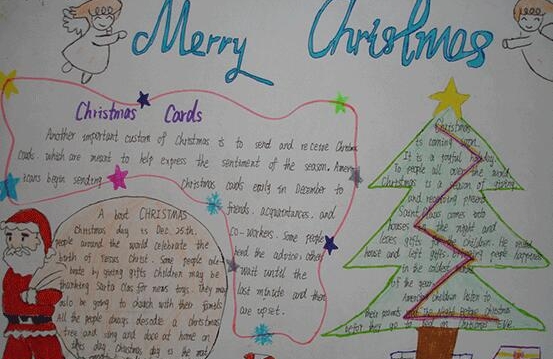 Merry Christmas
Christmas Cards
Another important custom of Christmas is to send and receive Christmas
cards, which are meant to help express the sentiment of the season. Ameri
cans begin sending Christmas cards early in December to
friends, acquaintances, and
co-workers. Some people
heed the advice; others
wait until the
last minute and then
are upset.
A bout CHRISTMAS
Christmas day is Dec. 25th,
people around the world celebrate the
birth of Christ. Some people
by giving gifts children may be
thanking Santa Claus for news toys. They may
also be going to church with their
All the people always a christmas
tree and sing and dance at home on
this day. Christmas day is the
Christmas
is coming soon.
It is a joyful holiday
To people all over the world
Christmas is a season of giving
and receiving present
Saint comes into
houses in the night and
gifts for the children. He
house and left gifts,
in the coldest
of the year.
American children listen to
their parents The Night Before Christmas
before they go to bed on Christmas Eve.